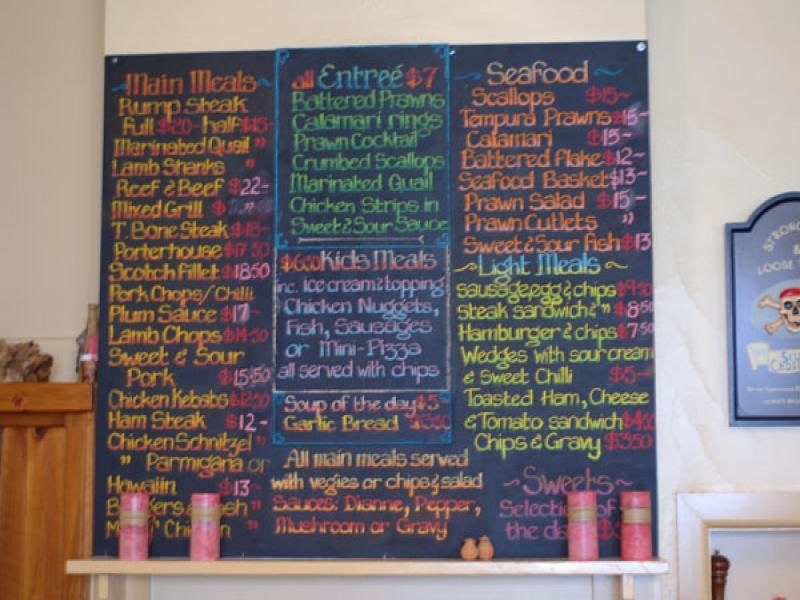 Main Meals
Rump Steak
Full $20- half $15-
Marinated Quail "
Lamb Shanks "
Reef & Beef $22-
Mixed Grill $ "
T. Bone Steak $18-
Porterhouse $17.50
Scotch Fillet $18.50
Pork Chops/Chilli
Plum Sauce $17
Lamb Chops $14.50
Sweet & Sour
Pork $15.50
Chicken Kebabs $12.50
Ham Steak $12-
Chicken Schnitzel "
" Parmigana or
Howaiin $13-
&
Chicken "
all Entreé $7
Battered Prawns
Calamari rings
Prawn Cocktail
Crumbed Scallops
Marinated Quail
Chicken Strips in
Sweet & Sour Sauce
$6.50 Kids Meals
inc. ice cream & topping
Chicken Nuggets,
Fish, Sausages
or Mini-Pizza
all served with chips
Soup of the day $5
Garlic Bread $3.50
All main meals served
with vegies or chips & salad
Sauces: Dianne, Pepper,
Mushroom or Gravy
Seafood
Scallops $15-
Tempura Prawns $15-
Calamari $15-
Battered flake $12-
Seafood Basket $13-
Prawn Salad $15-
Prawn Cutlets "
Sweet & Sour Fish $13
Light Meals
sausage, egg & chips $9.50
steak sandwich & " $8.50
Hamburger & chips $7.50
Wedges with sour cream
& Sweet Chilli $5-
Toasted Ham, Cheese
& Tomato sandwich $4.50
Chips & Gravy $3.50
Sweets
Selection of
the
LOOSE